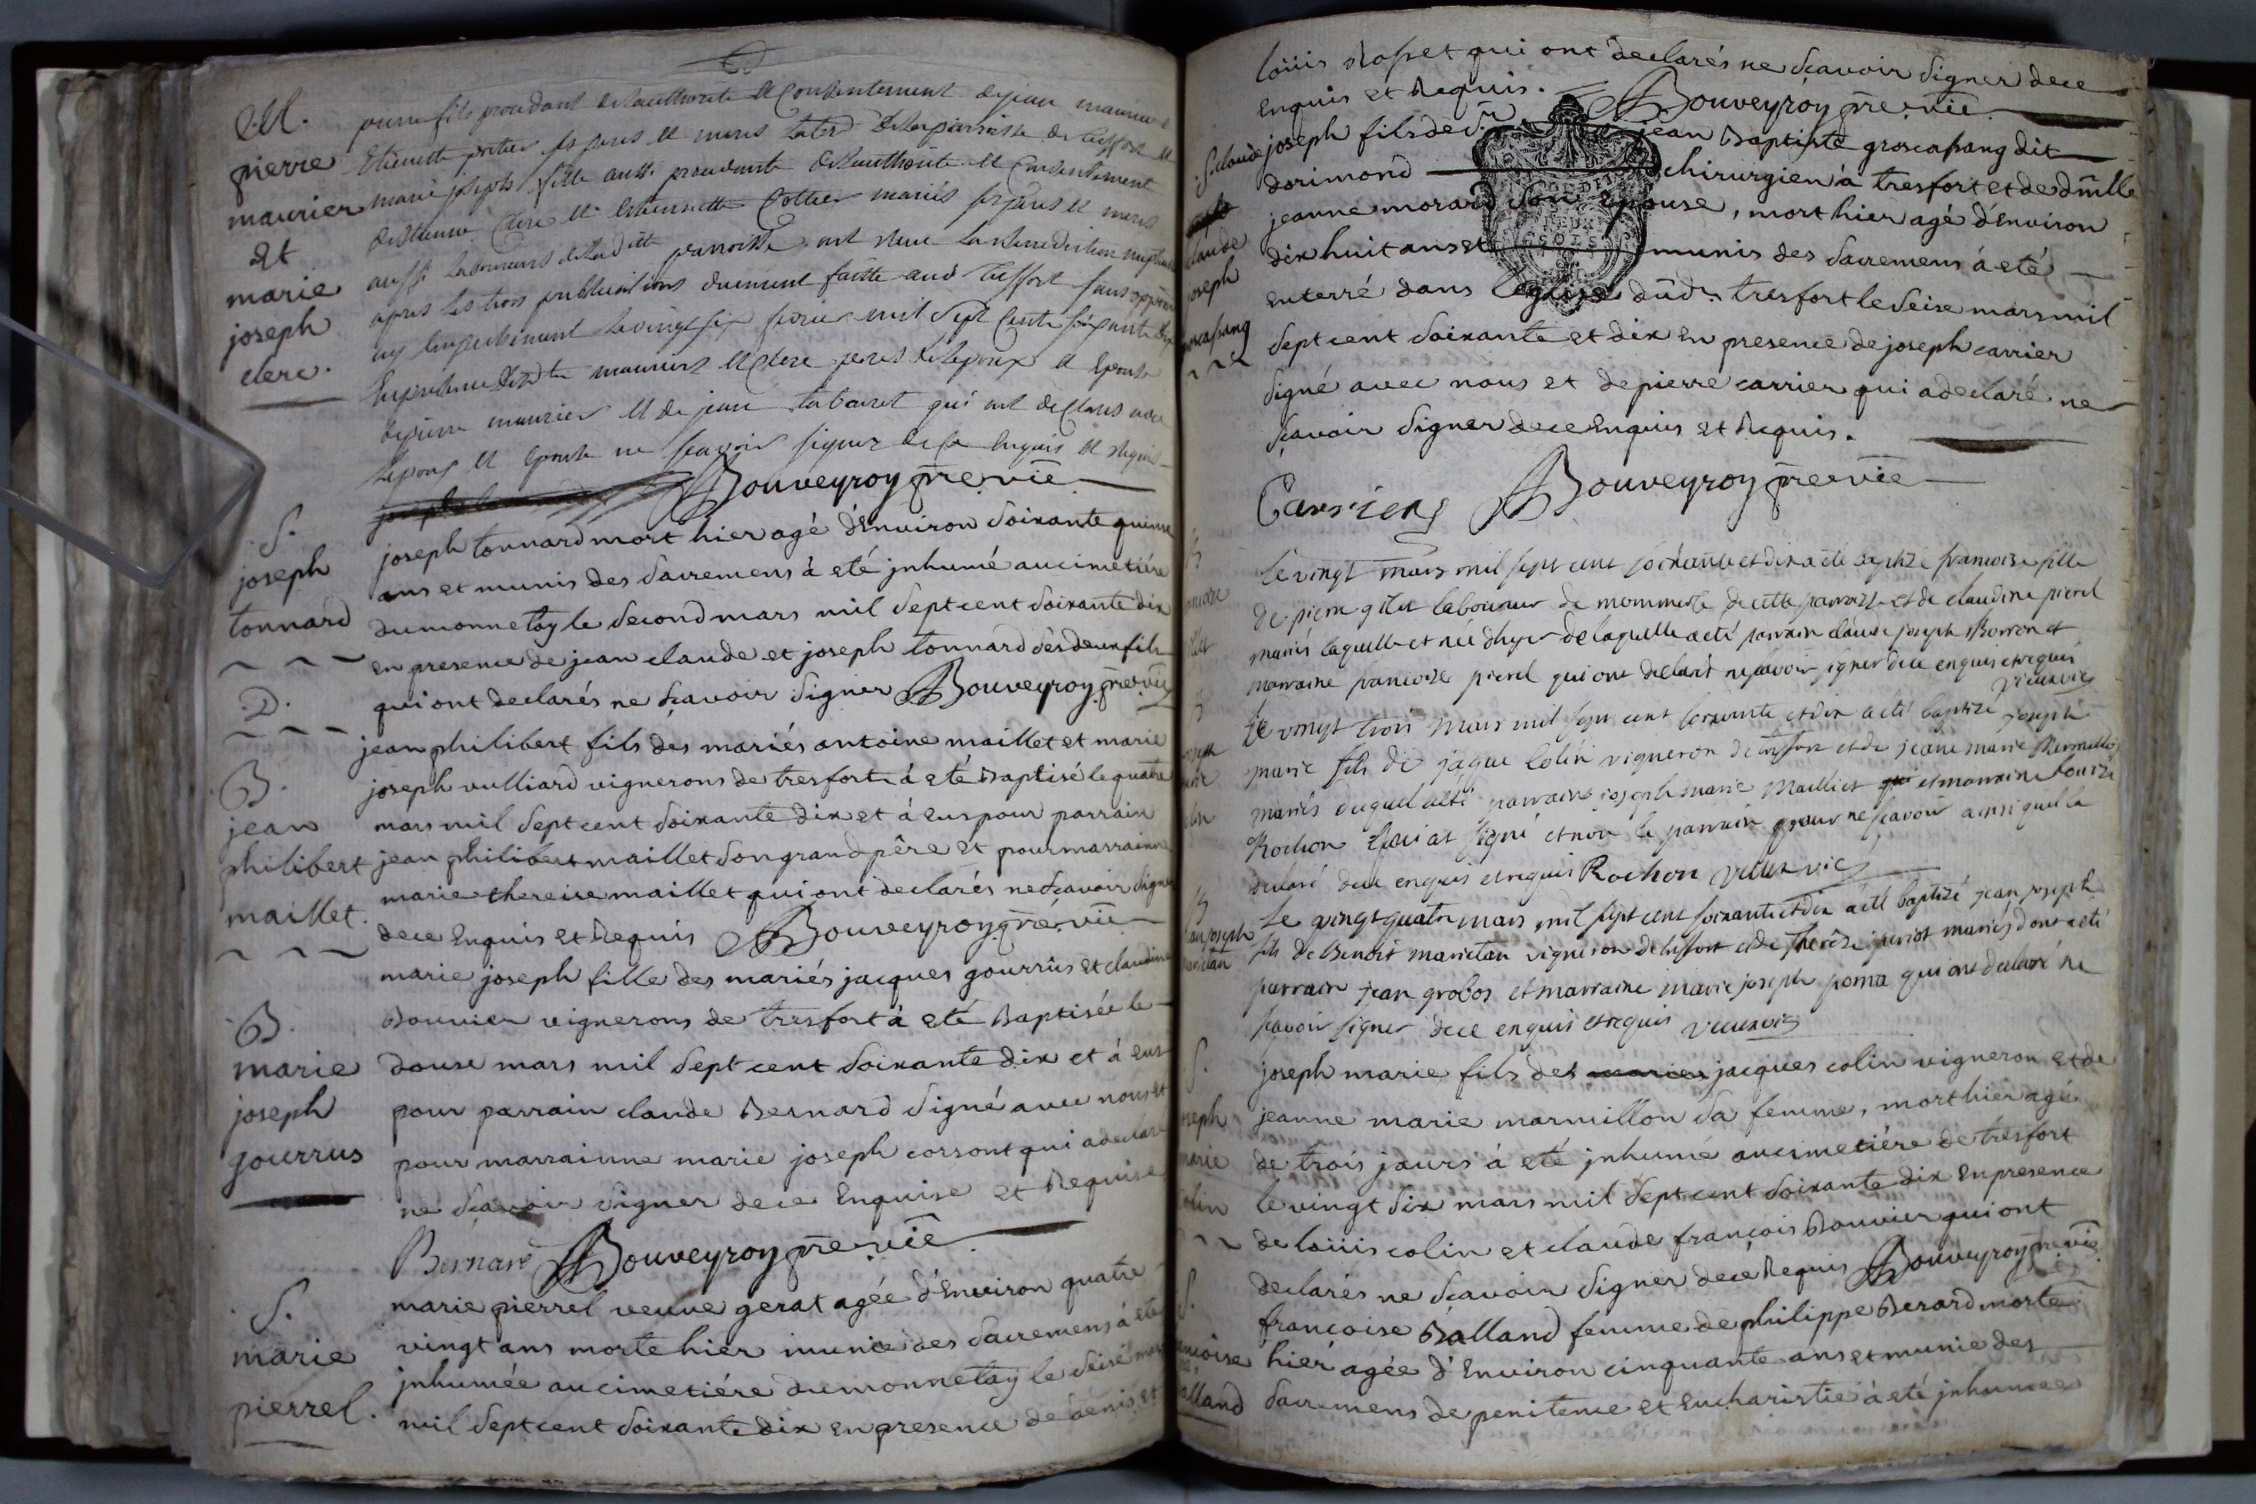 M.
pierre
maurier
et
marie
joseph
clerc.
pierre fils procedant de l'authorite et consentement de jean maurier et
etiennette potier ses peres et meres laber de la paroisse de treffort et
marie joseph fille aussi procedante de l'authorite et consentement
d'etienne clerc et etiennette mariés ses peres et meres
aussi laboureurs de laditte parroisse ont reçu la benediction nuptiale
apres les trois publications duement faitte aud treffort sans opposition
ny empechement le vingt six fevrier mil sept cents soixante dix
en presence desdts mauriers et clerc peres de l'epoux et epouse
de pierre maurier et de jean tabouret qui ont declarés avec
l'epoux et epouse ne scavoir signer de ce enquis et requis
Bouveyroy pre. vie
S.
joseph
tonnard
joseph tonnard mort hier agé d'Environ Soixante quinze
ans et munis des Sacremens à eté jnhumé au cimetiére
du monnetay le Second mars mil Sept cent Soixante dix
en presence de jean claude et joseph tonnard ses deux fils
qui ont declarés ne Sçavoir Signer Bouveyroy pre. vie
D.
B.
jean
philibert
maillet.
jean philibert fils des mariés antoine maillet et marie
joseph vulliard vignerons de tresfort à eté Baptisé le quatre
mars mil Sept cent Soixante dix et à eus pour parrain
jean philibert maillet Son grand pêre et pour marrainne
marie thereise maillet qui ont declarés ne Sçavoir Signer
de ce Enquis et Requis Bouveyroy pre. vie
B.
marie
joseph
gourrus
marie joseph fille des mariés jacques gourrus et claudine
Bouvier vignerons de tresfort à eté Baptisée le
douse mars mil Sept cent Soixante dix et à eus
pour parrain claude Bernard Signé avec nous et
pour marrainne marie joseph corsont qui a declaré
ne Sçavoir Signer de ce Enquise et Requise
Bernard Bouveyroy pre. vie
S.
marie
pierrel.
marie pierrel veuve gerat agée d'Environ quatre
vingt ans morte hier munie des Sacremens à eté
jnhumée au cimetiére du monnetay le Seise mars
mil Sept cent Soixante dix en presence de denis et
loüis Rosset qui ont declarés ne Sçavoir Signer de ce
Enquis et Requis. Bouveyroy pre. vie
S. claude
claude
joseph
groscassang
joseph fils de Sr jean Baptiste groscassang dit
dorimond chirurgien à tresfort et de dmlle
jeanne morard Son Epouse, mort hier agé d'Environ
dix huit ans et munis des Sacremens à eté
enterré dans l'eglise dud. tresfort le Seise mars mil
Sept cent Soixante et dix en presence de joseph carrier
Signé avec nous et de pierre carrier qui a declaré ne
Sçavoir Signer de ce Enquis et Requis.
Carrier Bouveyroy pre vie
Le vingt mars mil sept cent soixante et dix a été baptizé francoise fille
de pierre gilet laboureur de mommerle de cette parroisse et de claudine pierel
mariés laquelle et née d'hyer de laquelle a eté parrain claude joseph Borron et
marraine francoise pierel qui ont declaré ne scavoir signer de ce enquis et requis
vieux vic
Le vingt trois mars mil sept cent soixante et dix a eté baptizé joseph
marie fils de jaque Colin vigneron de tresfort et de jeanne marie Mermillon
mariés duquel a eté parrain joseph marie Mailliet et marraine Louize
Rochon qui at signé et non le parrain pour ne scavoir ainsi quil la
declaré de ce enquis et requis Rochon vieux vic
B
jean joseph
marietan
Le vingt quatre mars mil sept cent soixante et dix a eté baptizé jean joseph
fils de Benoit marietan vigneron de tresfort et de Therèse juriot mariés dont a eté
parrain jean grobos et marraine marie joseph poma qui ont declaré ne
scavoir signer de ce enquis et requis vieux vic
S.
joseph
marie
colin
joseph marie fils des jacques colin vigneron et de
jeanne marie marmillon Sa femme, mort hier agé
de trois jours à eté jnhumé au cimetiére de tresfort
le vingt Six mars mil Sept cent Soixante dix En presence
de loüis colin et claude françois Bouvier qui ont
declarés ne Sçavoir Signer de ce Requis Bouveyroy pre vie
S.
francoise
Balland
françoise Balland femme de philippe Berard morte
hier agée d'Environ cinquante ans et munie des
Sacremens de penitence et Eucharistie à eté jnhumée